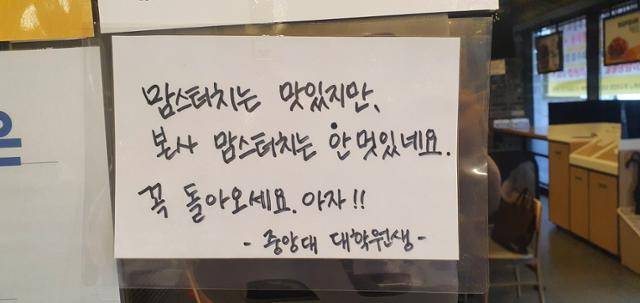 맘스터치는 맛있지만,
본사 맘스터치는 안멋있네요.
꼭 돌아오세요. 아자!!
- 중앙대 대학원생 -